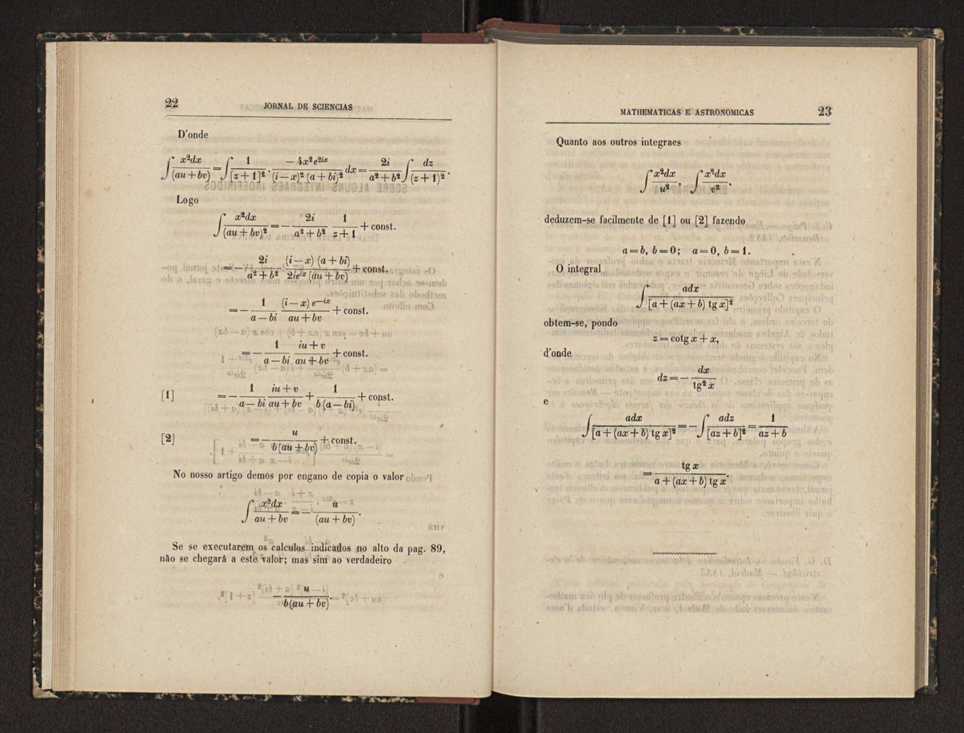 22 JORNAL DE SCIENCIAS
D'onde
∫ x²dx/(au+bv) = ∫ 1/[z+1]² · −4x²e^{2ix}/((i−x)²(a+bi)²) dx = 2i/(a²+b²) ∫ dz/(z+1)².
Logo
∫ x²dx/(au+bv)² = − 2i/(a²+b²) 1/(z+1) + const.
= − 2i/(a²+b²) (i−x)(a+bi)/(2ie^{ix}(au+bv)) + const.
= − 1/(a−bi) (i−x)e^{−ix}/(au+bv) + const.
= − 1/(a−bi) (iu+v)/(au+bv) + const.
[1] = − 1/(a−bi) (iu+v)/(au+bv) + 1/(b(a−bi)) + const.
[2] = − u/(b(au+bv)) + const.
No nosso artigo demos por engano de copia o valor
∫ x²dx/(au+bv) = − u/(au+bv).
Se se executarem os calculos indicados no alto da pag. 89,
não se chegará a este valor; mas sim ao verdadeiro
− u/(b(au+bv)).
MATHEMATICAS E ASTRONOMICAS 23
Quanto aos outros integraes
∫ x²dx/u², ∫ x²dx/v².
deduzem-se facilmente de [1] ou [2] fazendo
a=b, b=0; a=0, b=1.
O integral
∫ adx/[a+(ax+b) tg x]²
obtem-se, pondo
z=cotg x+x,
d'onde
dz=− dx/tg² x
e
∫ adx/[a+(ax+b) tg x]² = −∫ adz/[az+b]² = 1/(az+b)
= tg x/(a+(ax+b) tg x).